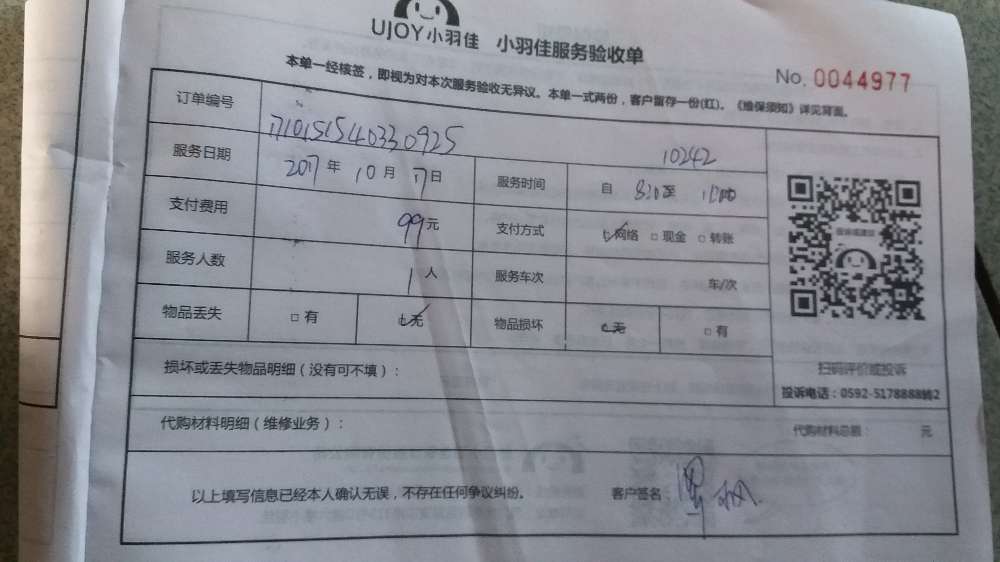 UJOY小羽佳 小羽佳服务验收单
No. 0044977
本单一经核签，即视为对本次服务验收无异议。本单一式两份，客户留存一份(红)。《维保须知》详见背面。
订单编号 1710151540330925 10242
服务日期 2017年 10月 17日 服务时间 自 830至
支付费用 99元 支付方式 网络 □ 现金 □ 转账
服务人数 1人 服务车次 车/次
物品丢失 □ 有 无 物品损坏 无 □ 有
损坏或丢失物品明细（没有可不填）：
扫码评价或投诉
投诉电话：0592-5178888转2
代购材料明细（维修业务）： 代购材料总额： 元
以上填写信息已经本人确认无误，不存在任何争议纠纷。 客户签名：